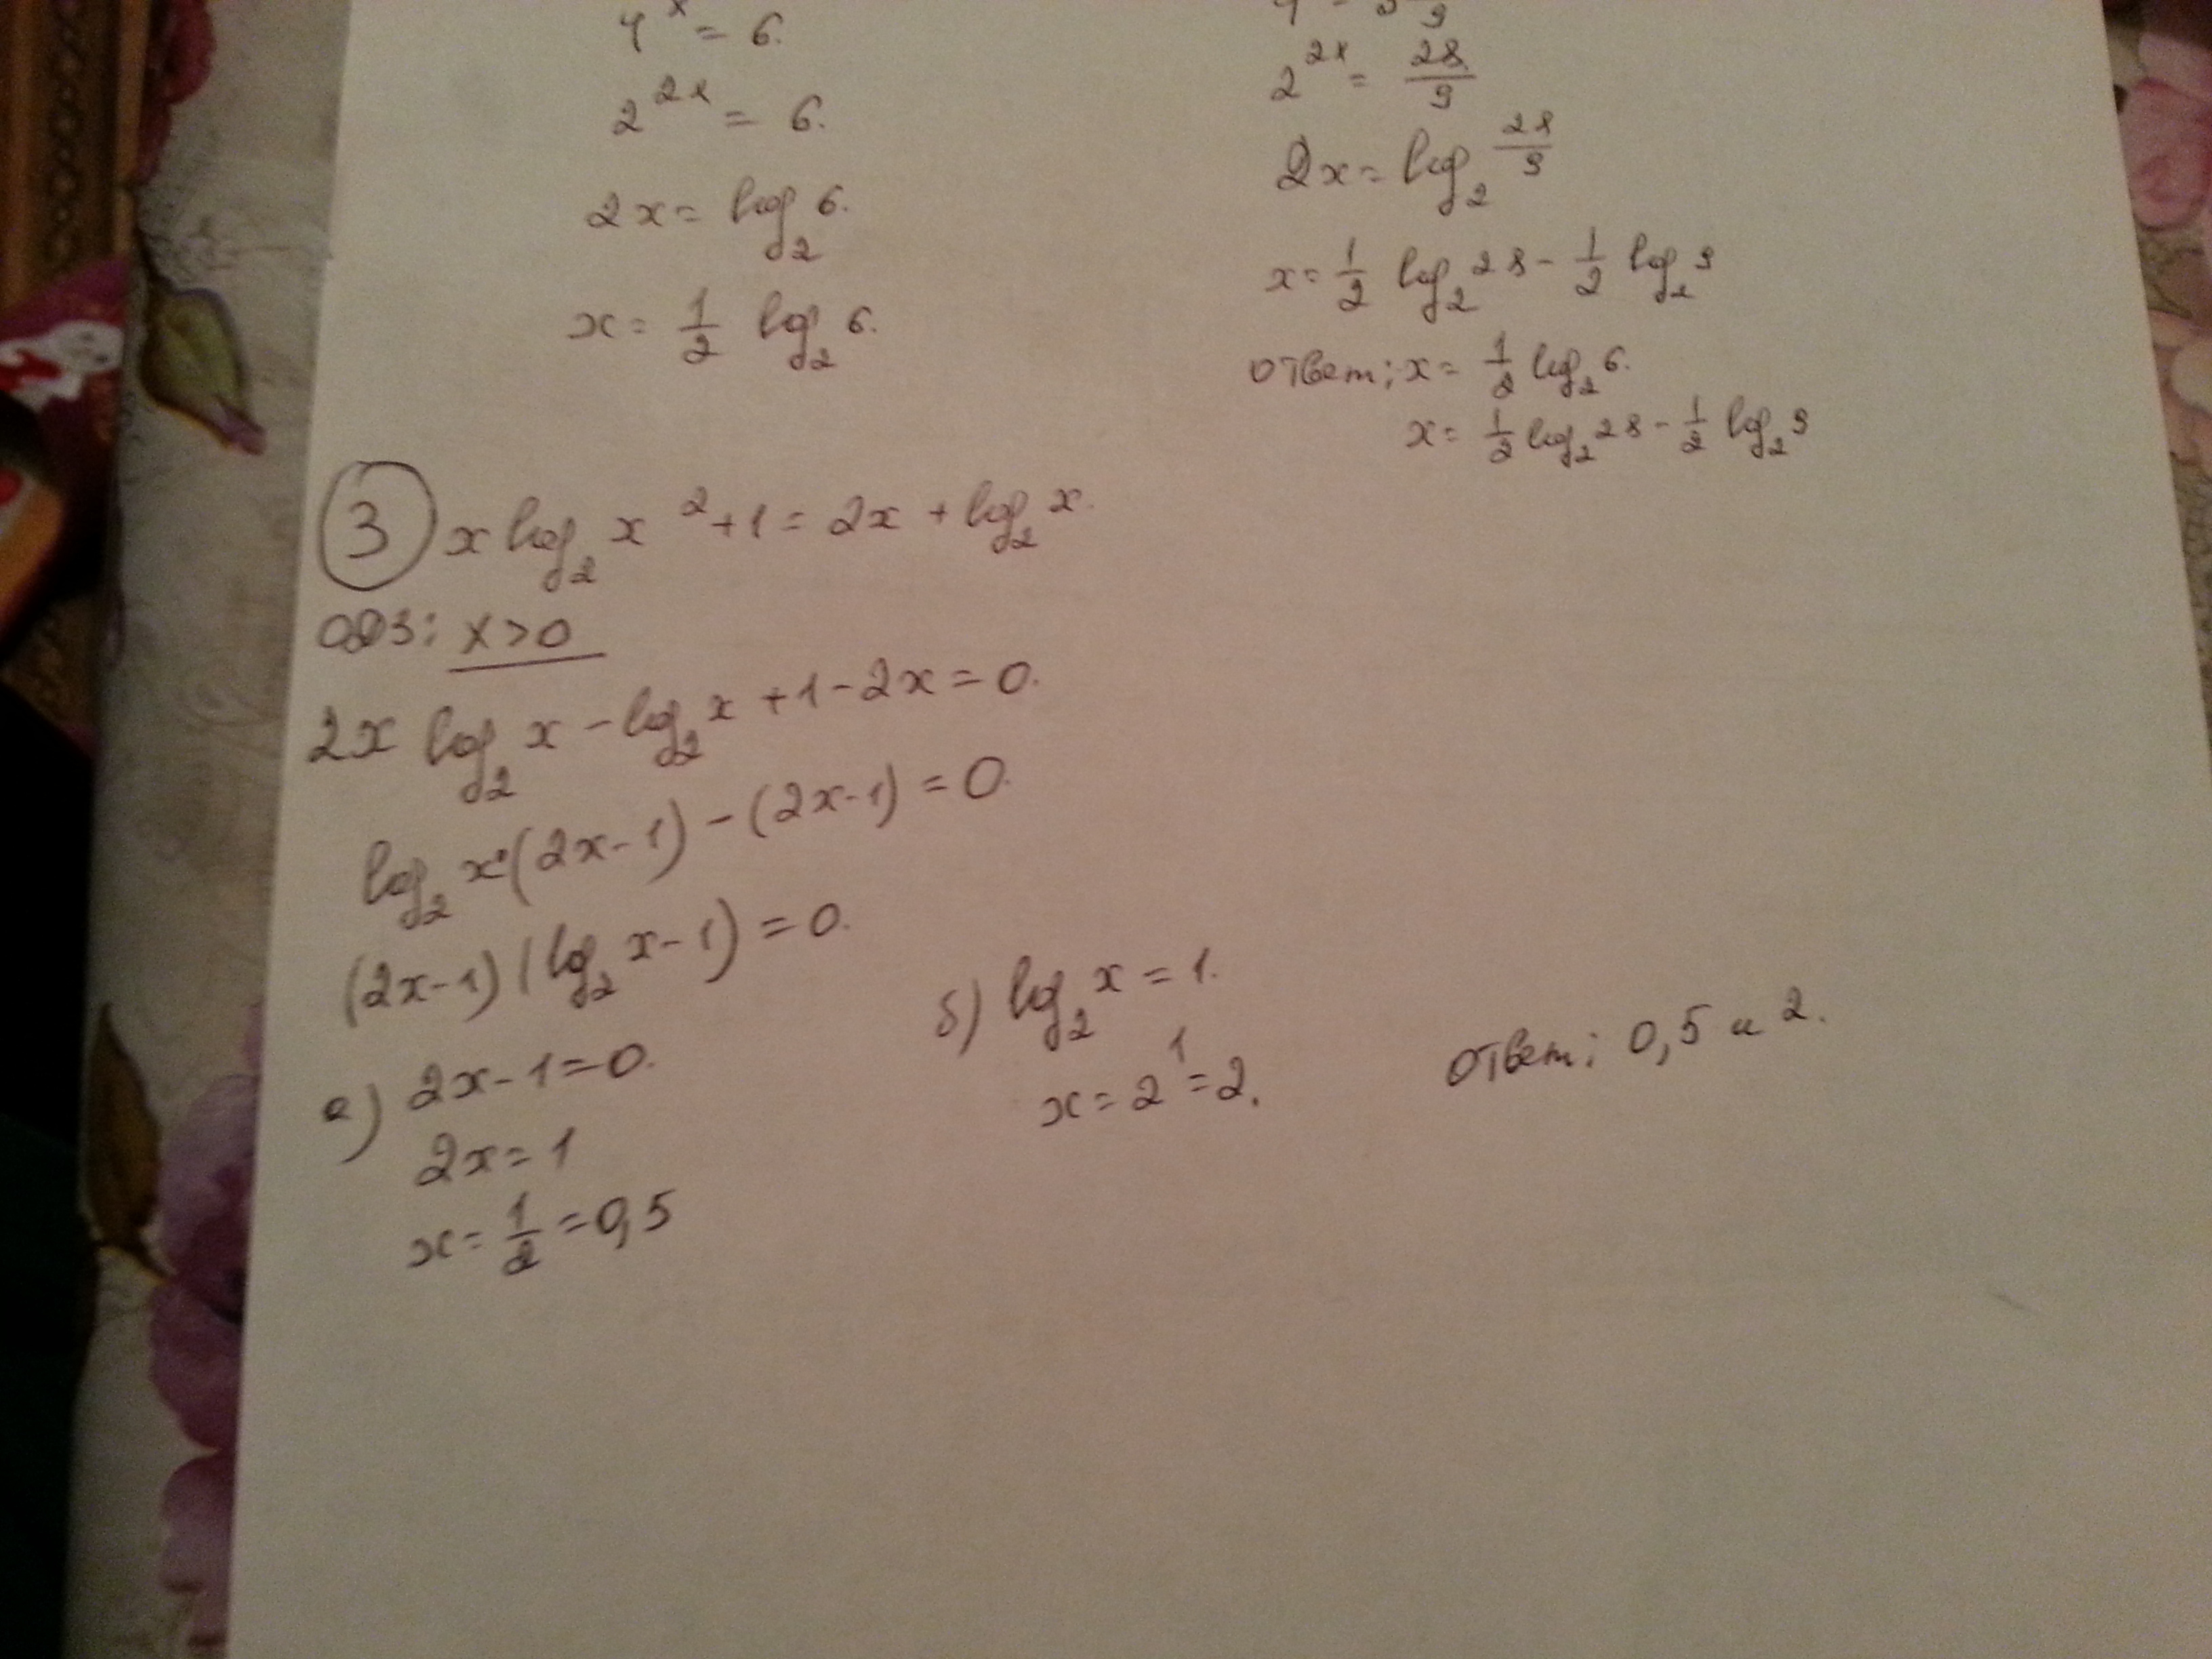 4^x = 6.
2^2x = 6.
2x = log_2 6.
x = 1/2 log_2 6.
2^2x = 28/9
2x = log_2 28/9
x = 1/2 log_2 28 - 1/2 log_2 9
ответ: x = 1/2 log_2 6.
x = 1/2 log_2 28 - 1/2 log_2 9
3 x log_2 x^2 + 1 = 2x + log_2 x.
ОДЗ: x > 0
2x log_2 x - log_2 x + 1 - 2x = 0.
log_2 x (2x - 1) - (2x - 1) = 0.
(2x - 1) (log_2 x - 1) = 0.
а) 2x - 1 = 0.
2x = 1
x = 1/2 = 0,5
б) log_2 x = 1.
x = 2^1 = 2.
ответ: 0,5 и 2.